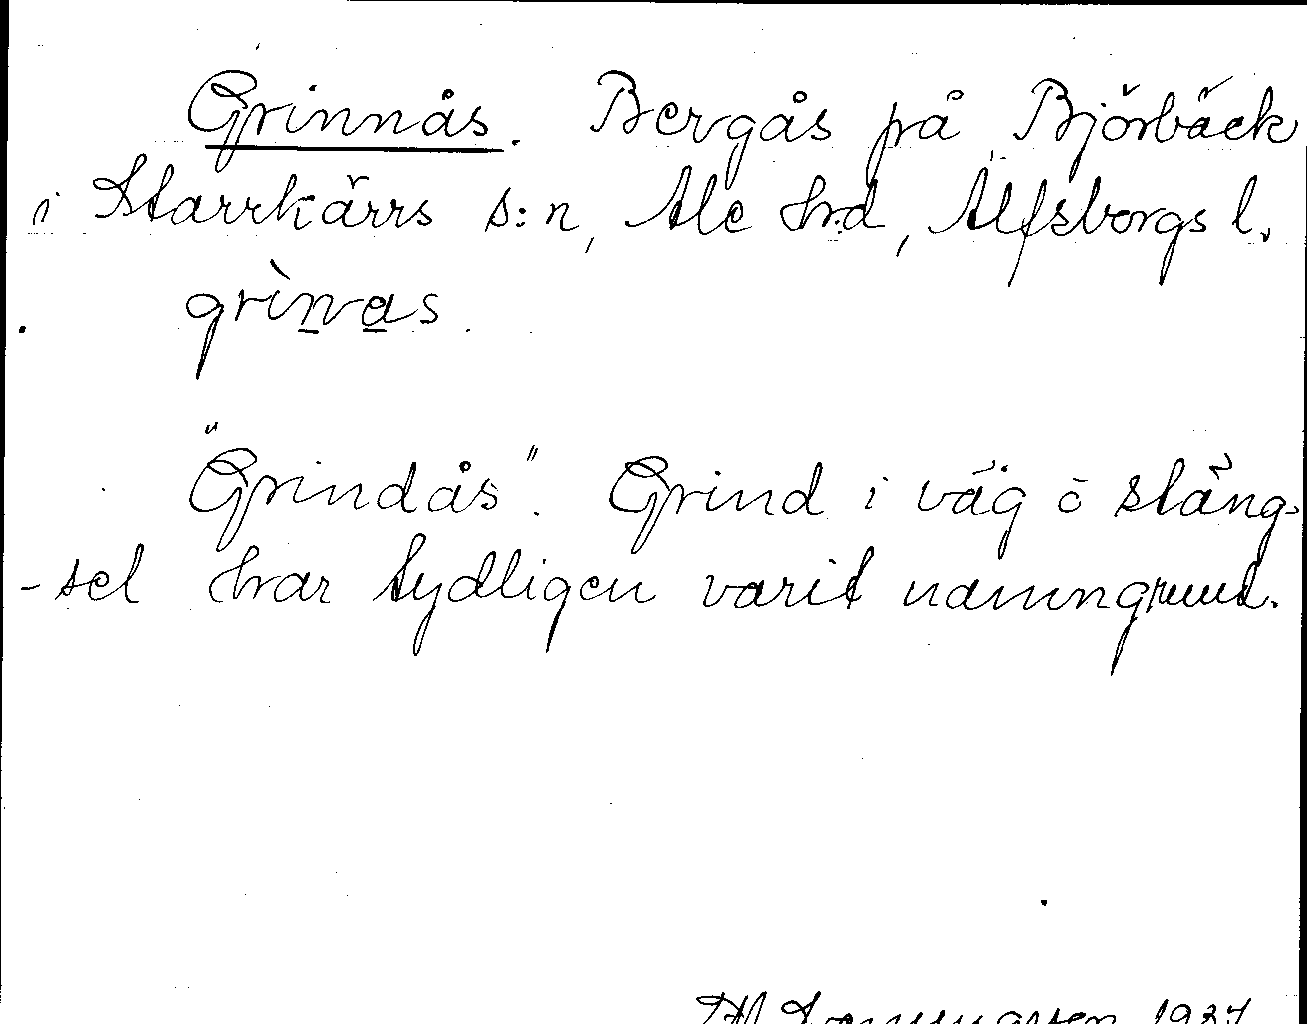 Grinnås. Bergås på Björbäck
i Starrkärrs s:n, Ale hrd, Älfsborgs l.
grìnas.
"Grindås". Grind i väg o stäng-
-sel har tydligen varit namngrund.
1927